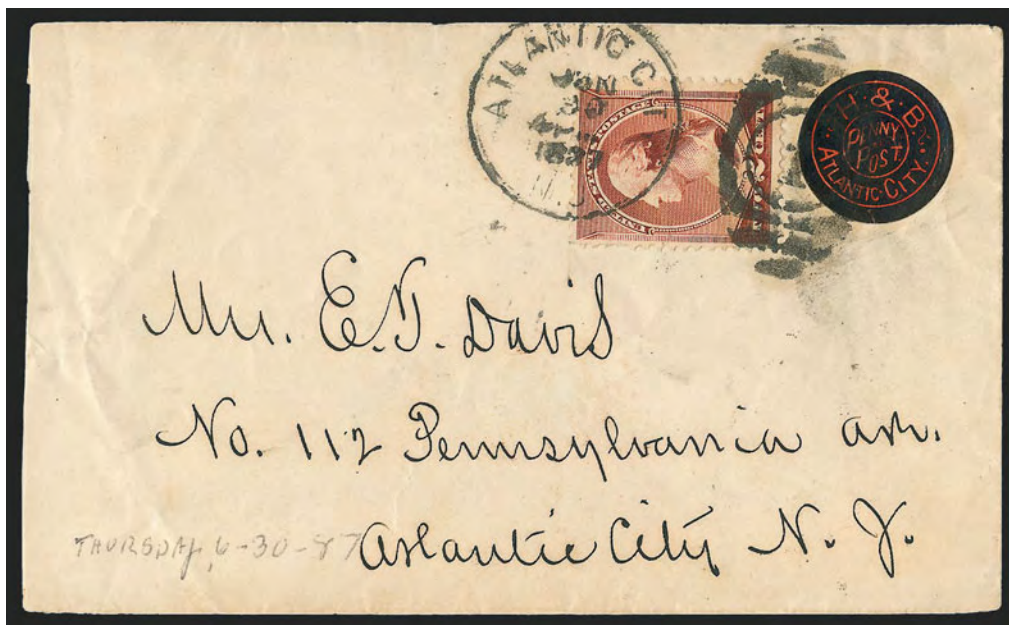 ATLANTIC CIT
JUN
30
1887
N.J.
H. & B.
PENNY
POST
ATLANTIC-CITY.
Mr. E. T. Davis
No. 112 Pennsylvania av.
Atlantic City N. J.
THURSDAY, 6-30-87